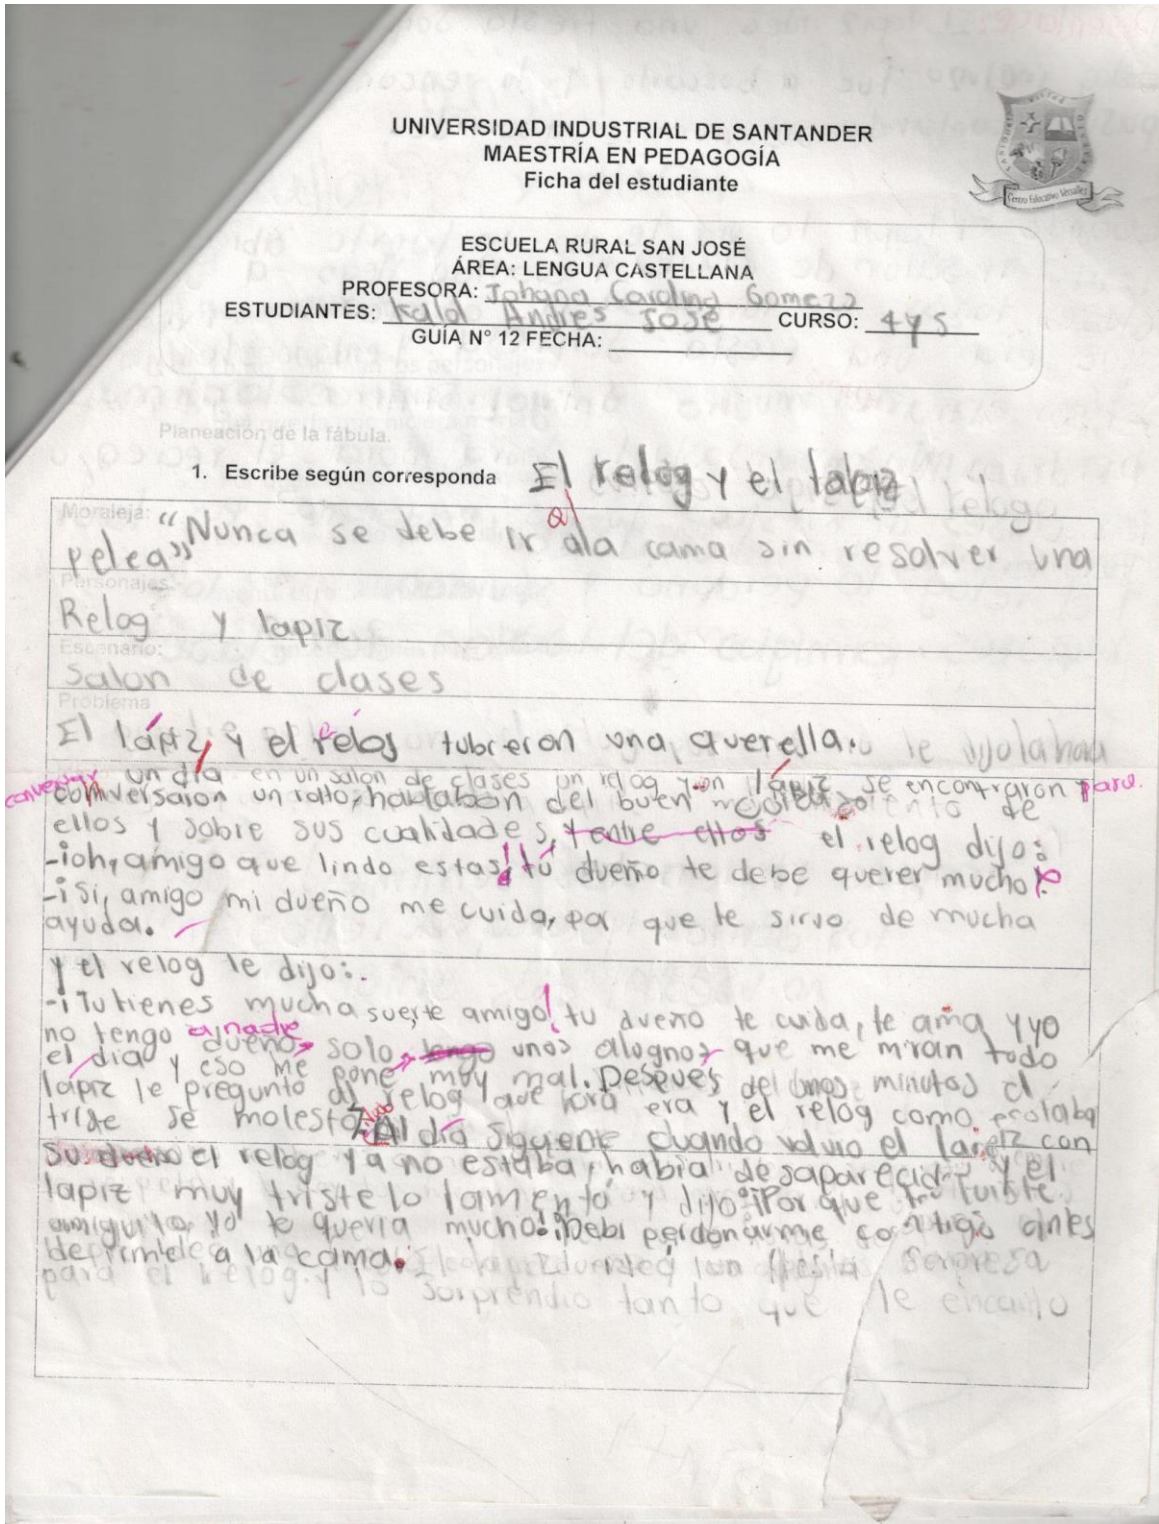 UNIVERSIDAD INDUSTRIAL DE SANTANDER
MAESTRÍA EN PEDAGOGÍA
Ficha del estudiante
Centro Educativo Versalles
ESCUELA RURAL SAN JOSÉ
ÁREA: LENGUA CASTELLANA
PROFESORA: Johana Carolina Gomezz
ESTUDIANTES: Kalol Andres Jose CURSO: 4y5
GUÍA N° 12 FECHA:
Planeación de la fábula.
1. Escribe según corresponda El relog y el lapiz
Moraleja: al
"Nunca se debe ir ala cama sin resolver una
pelea"
Personajes:
Relog y lapiz
Escenario:
Salon de clases
Problema
El lápiz, y el relog tubieron una querella.
un día en un salon de clases un relog y un lápiz se encontraron para
conversar
conversaron un ratto, hablabon del buen de
ellos y sobre sus cualidades, y entre ellos el relog dijo:
-¡oh, amigo que lindo estas! tú dueño te debe querer mucho.
-¡si, amigo mi dueño me cuida, por que le sirvo de mucha
ayuda.
y el relog le dijo:.
-¡Tu tienes mucha suerte amigo! tu dueño te cuida, te ama y yo
no tengo a nadie dueño, solo tengo unos alognos que me miran todo
el día y eso me pone muy mal. Despues del unos minutos el
lápiz le pregunto al relog que hora era y el relog como estaba
triste se molesto. Al día siguente cuando volvio el lapiz con
su dueño el relog ya no estaba, había desaparecido y el
lapiz muy triste lo lamentó y dijo: ¡Por que te fuiste
amiguito yo te queria mucho! ¡Debi perdonarme contigo antes
de irmele a la cama.
para el relog y lo sorprendio tanto que le encanto